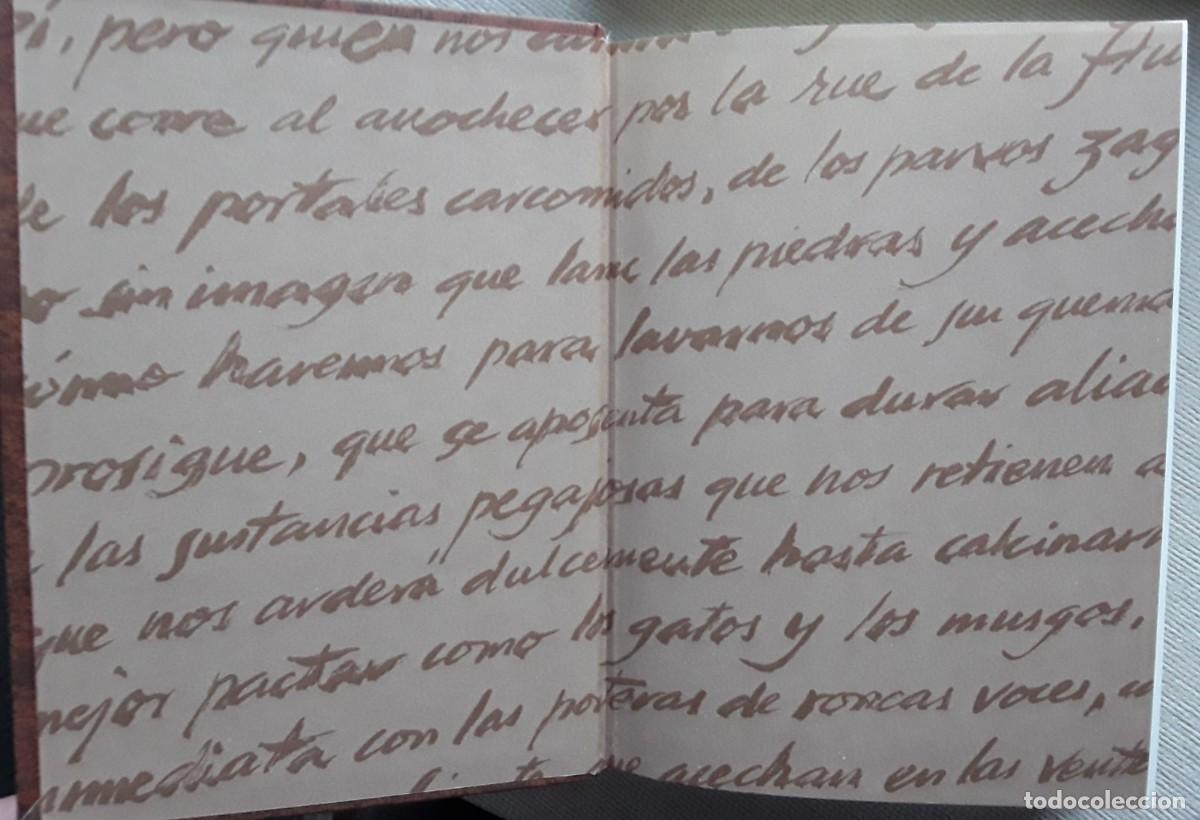 sí, pero quien nos
que corre al anochecer por la rue de la Hu
de los portales carcomidos, de los parvos zag
go sin imagen que lame las piedras y acecha
cómo haremos para lavarnos de su quema
prosigue, que se aposenta para durar alia
a las sustancias pegajosas que nos retienen a
que nos arderá dulcemente hasta calcinarn
mejor pactar como los gatos y los musgos,
inmediata con las porteras de roncas voces,
que acechan en las venta
todocoleccion